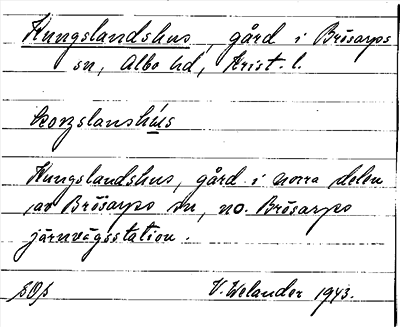 Kungslandshus, gård i Brösarps
sn, Albo hd, Krist. l.
Kungslandshus, gård i norra delen
av Brösarps sn, no. Brösarps
järnvägsstation.
V. Welander 1943.